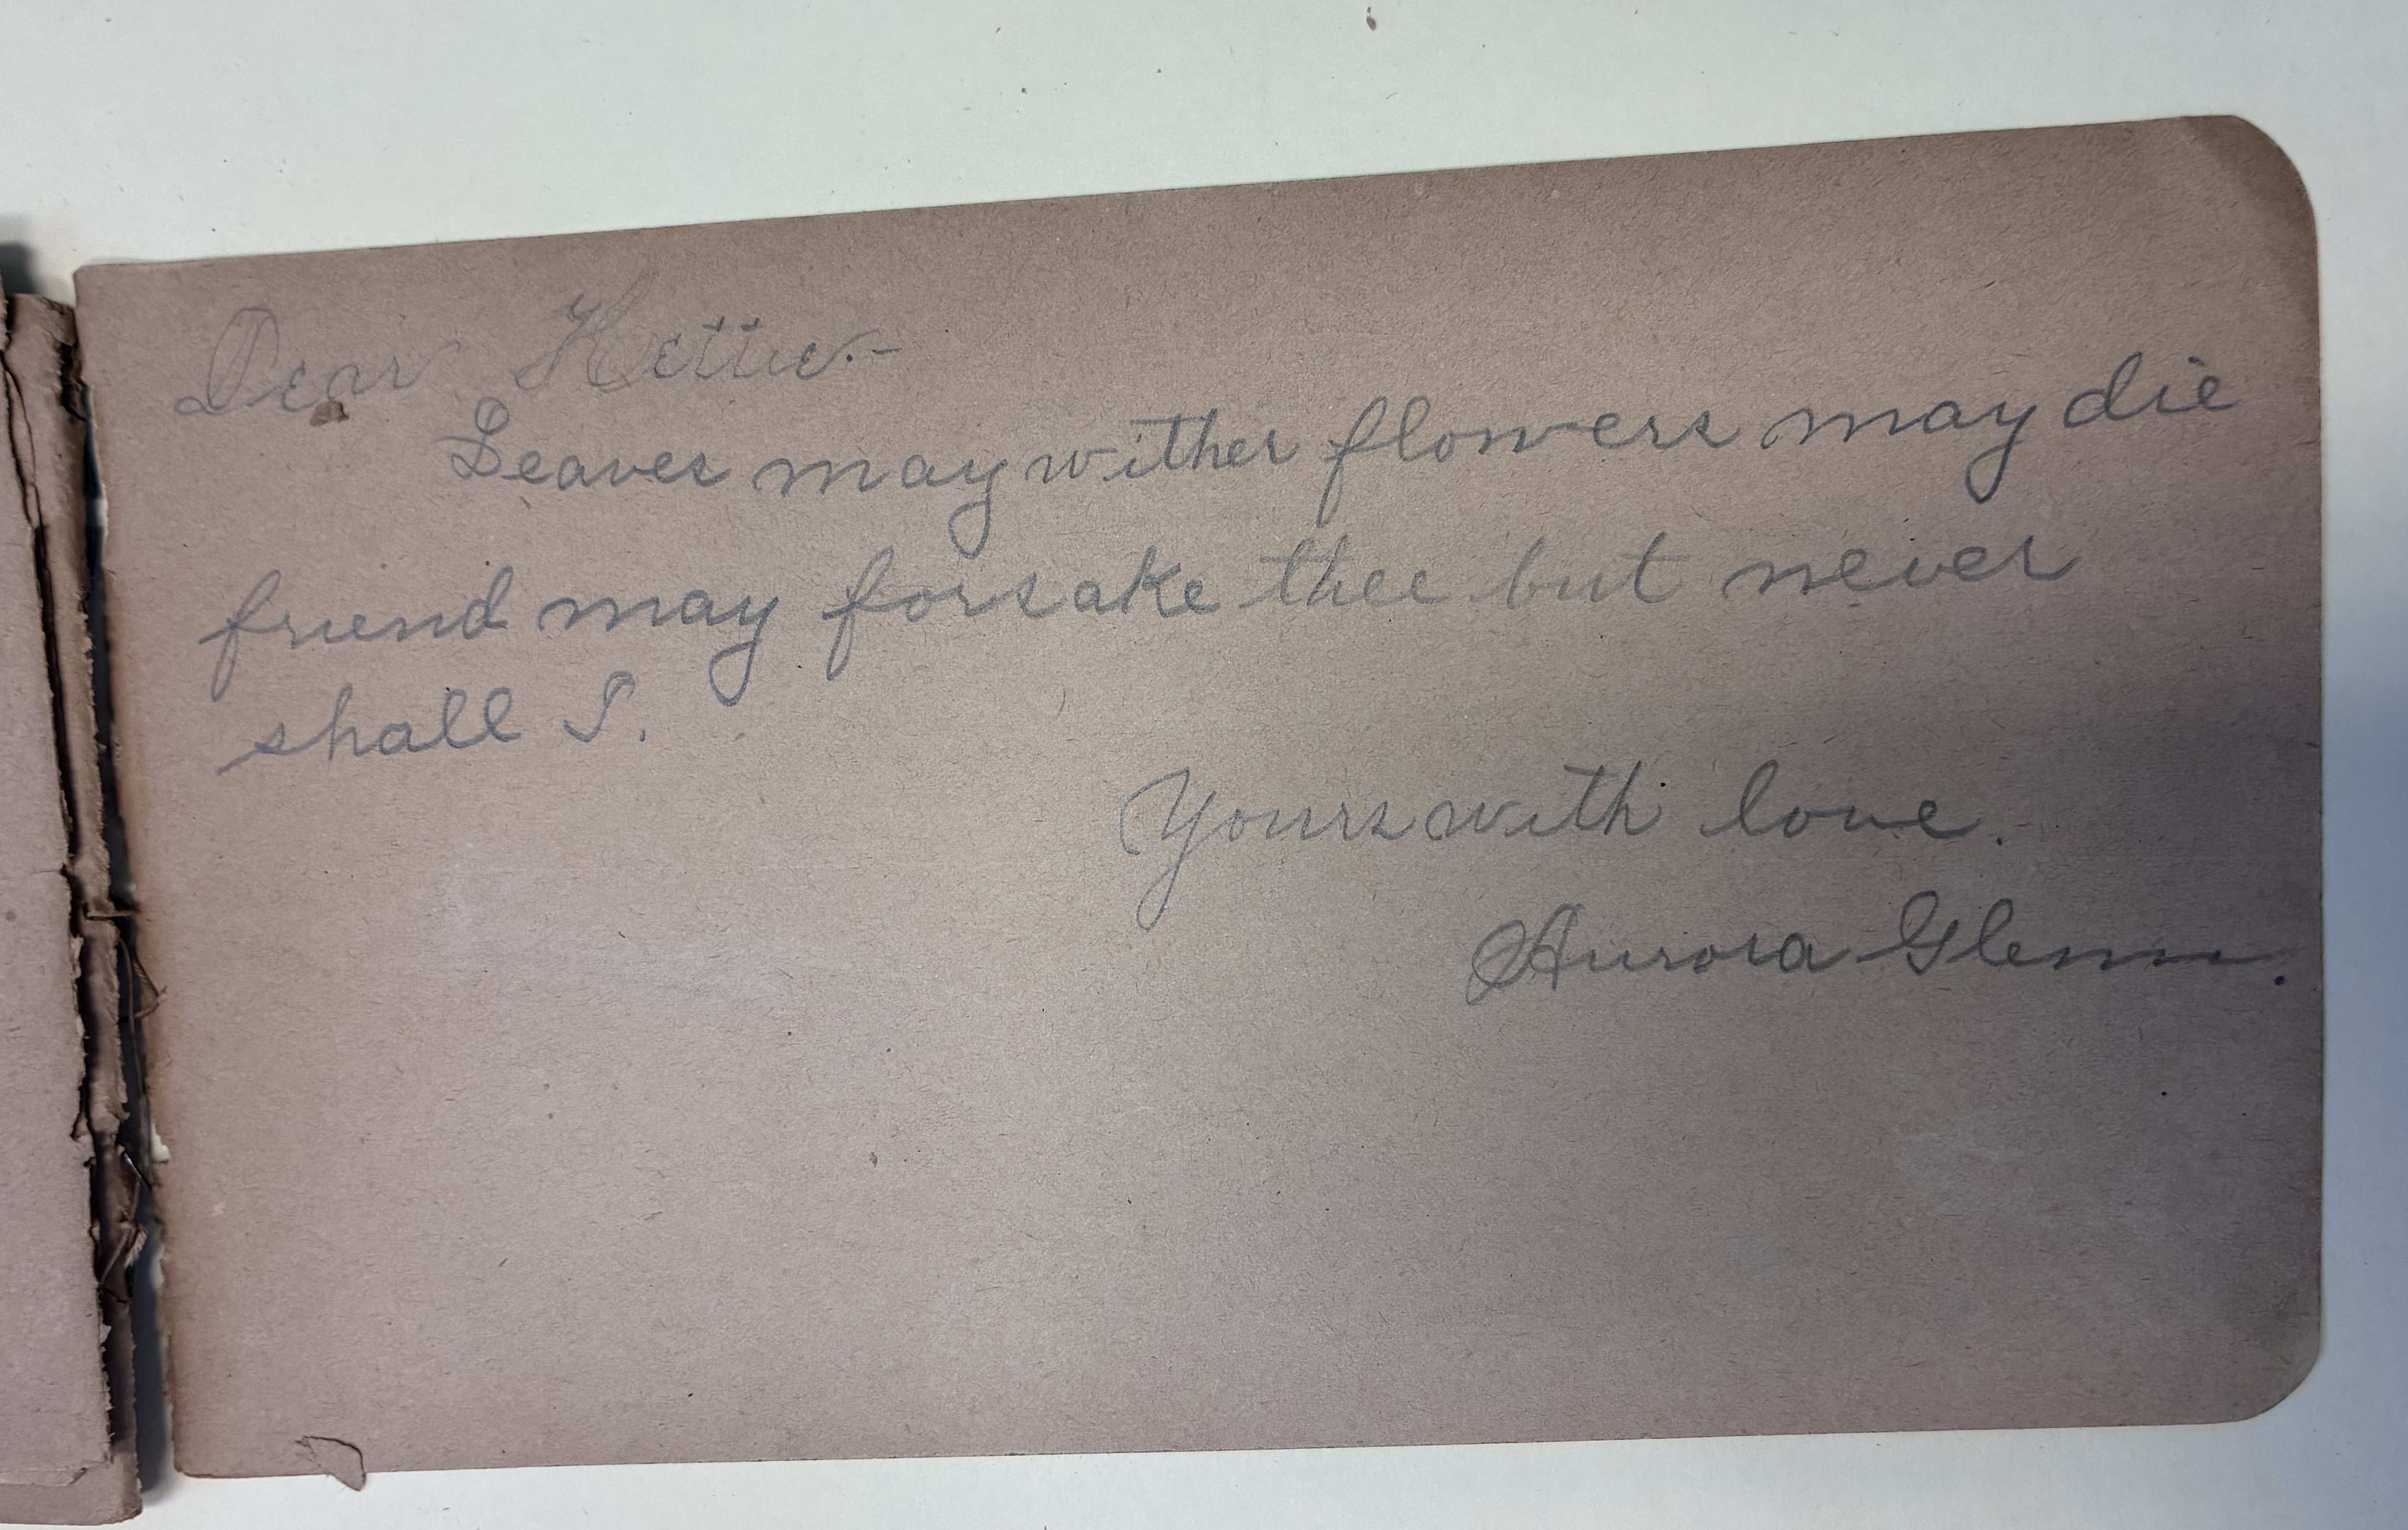 Dear Hettie.-
Leaves may wither flowers may die
friend may forsake thee but never
shall I.
Yours with love.
Aurora Glenn.